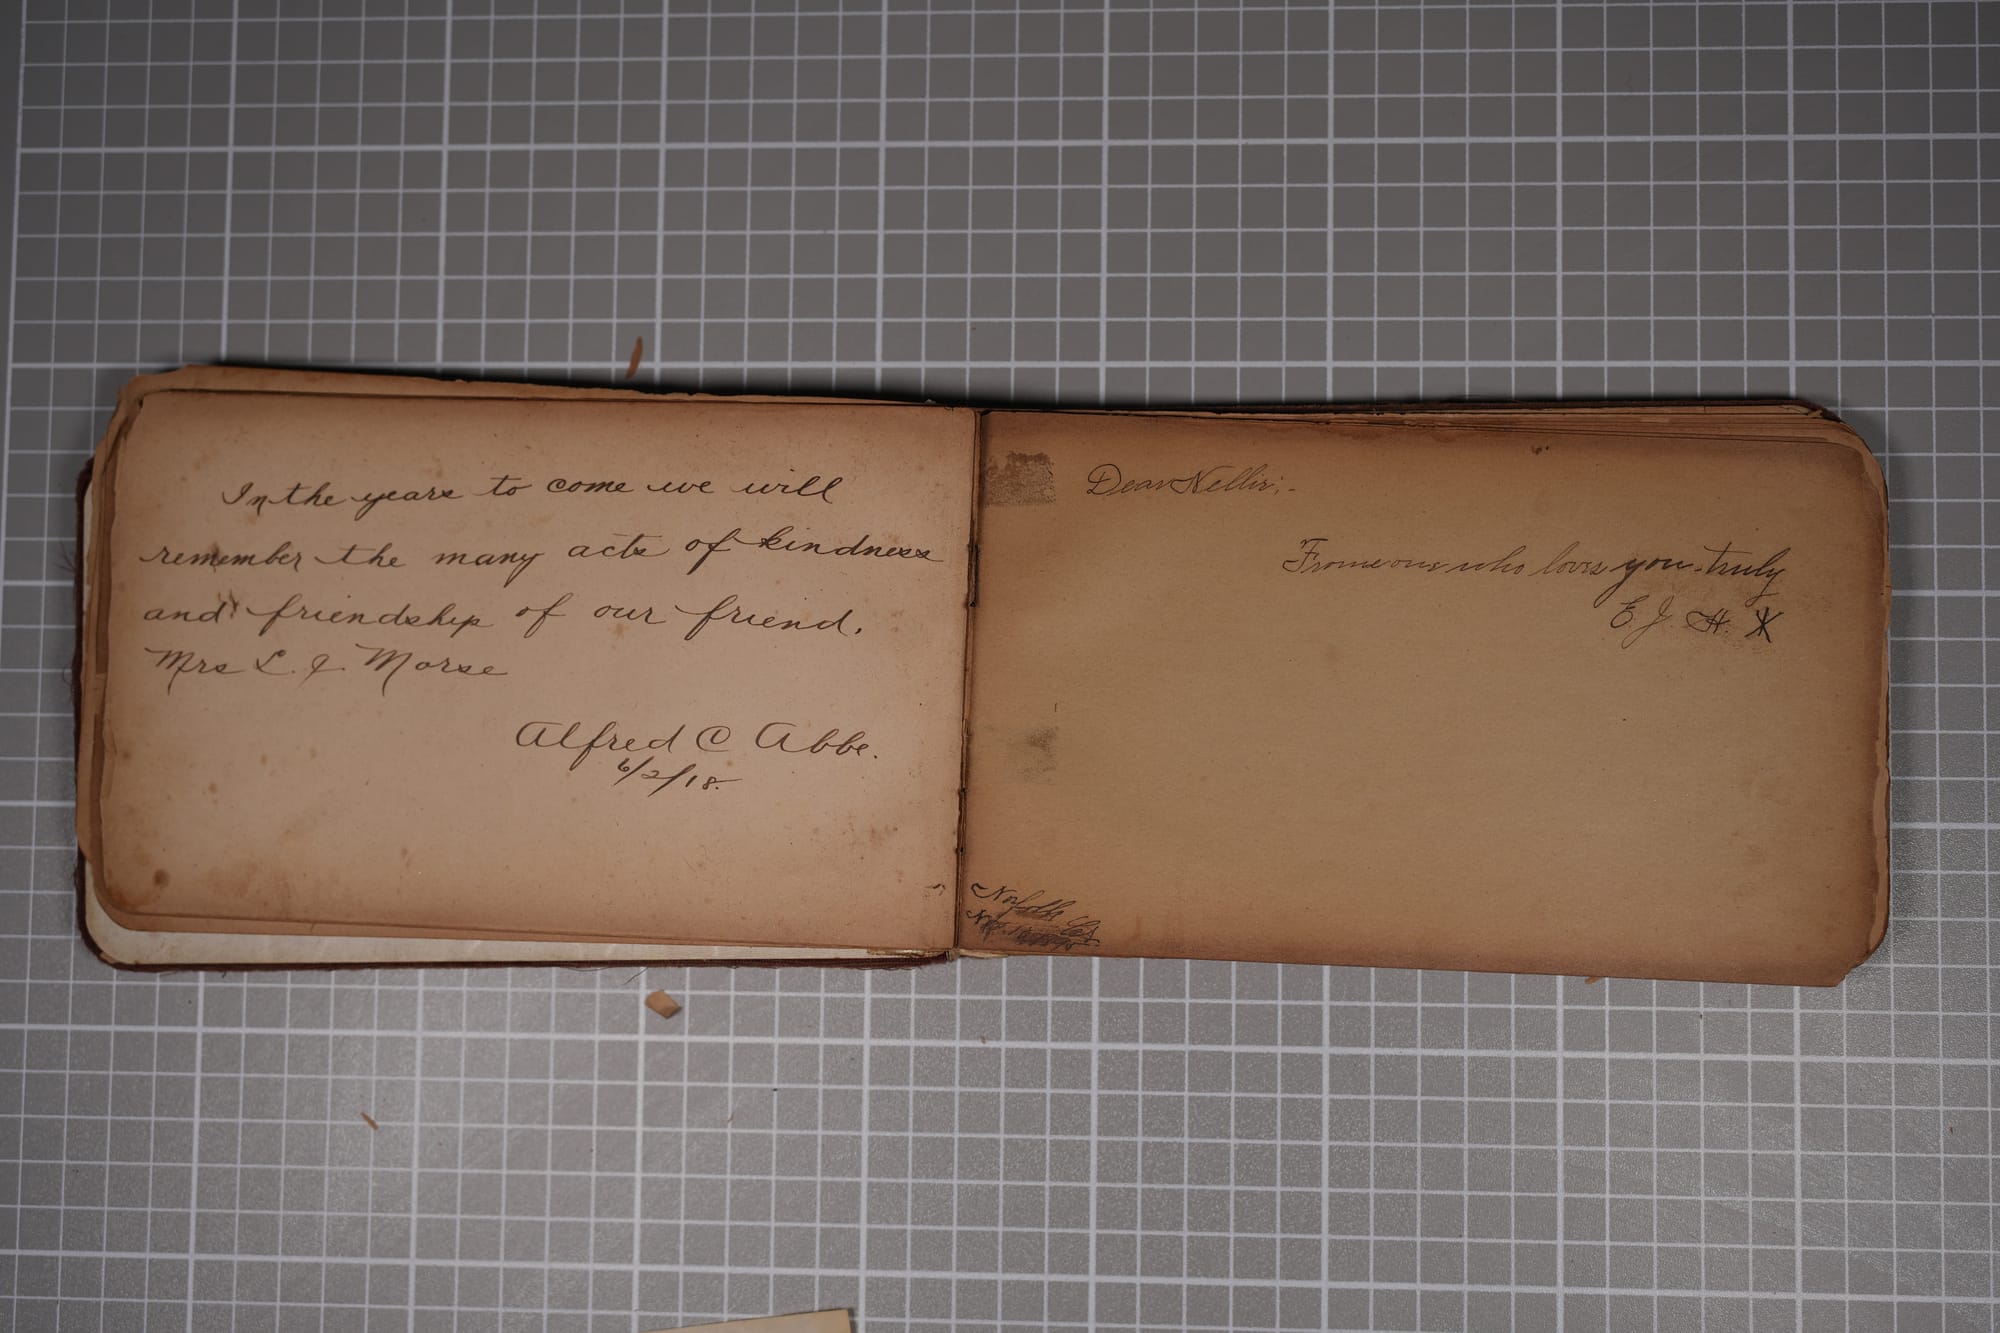 In the years to come we will
remember the many acts of kindness
and friendship of our friend.
Mrs L. J. Morse
Alfred C Abbe.
6/2/18.
Dear Nellie:-
From one who loves you truly
E. J. H.
Norfolk Ct.